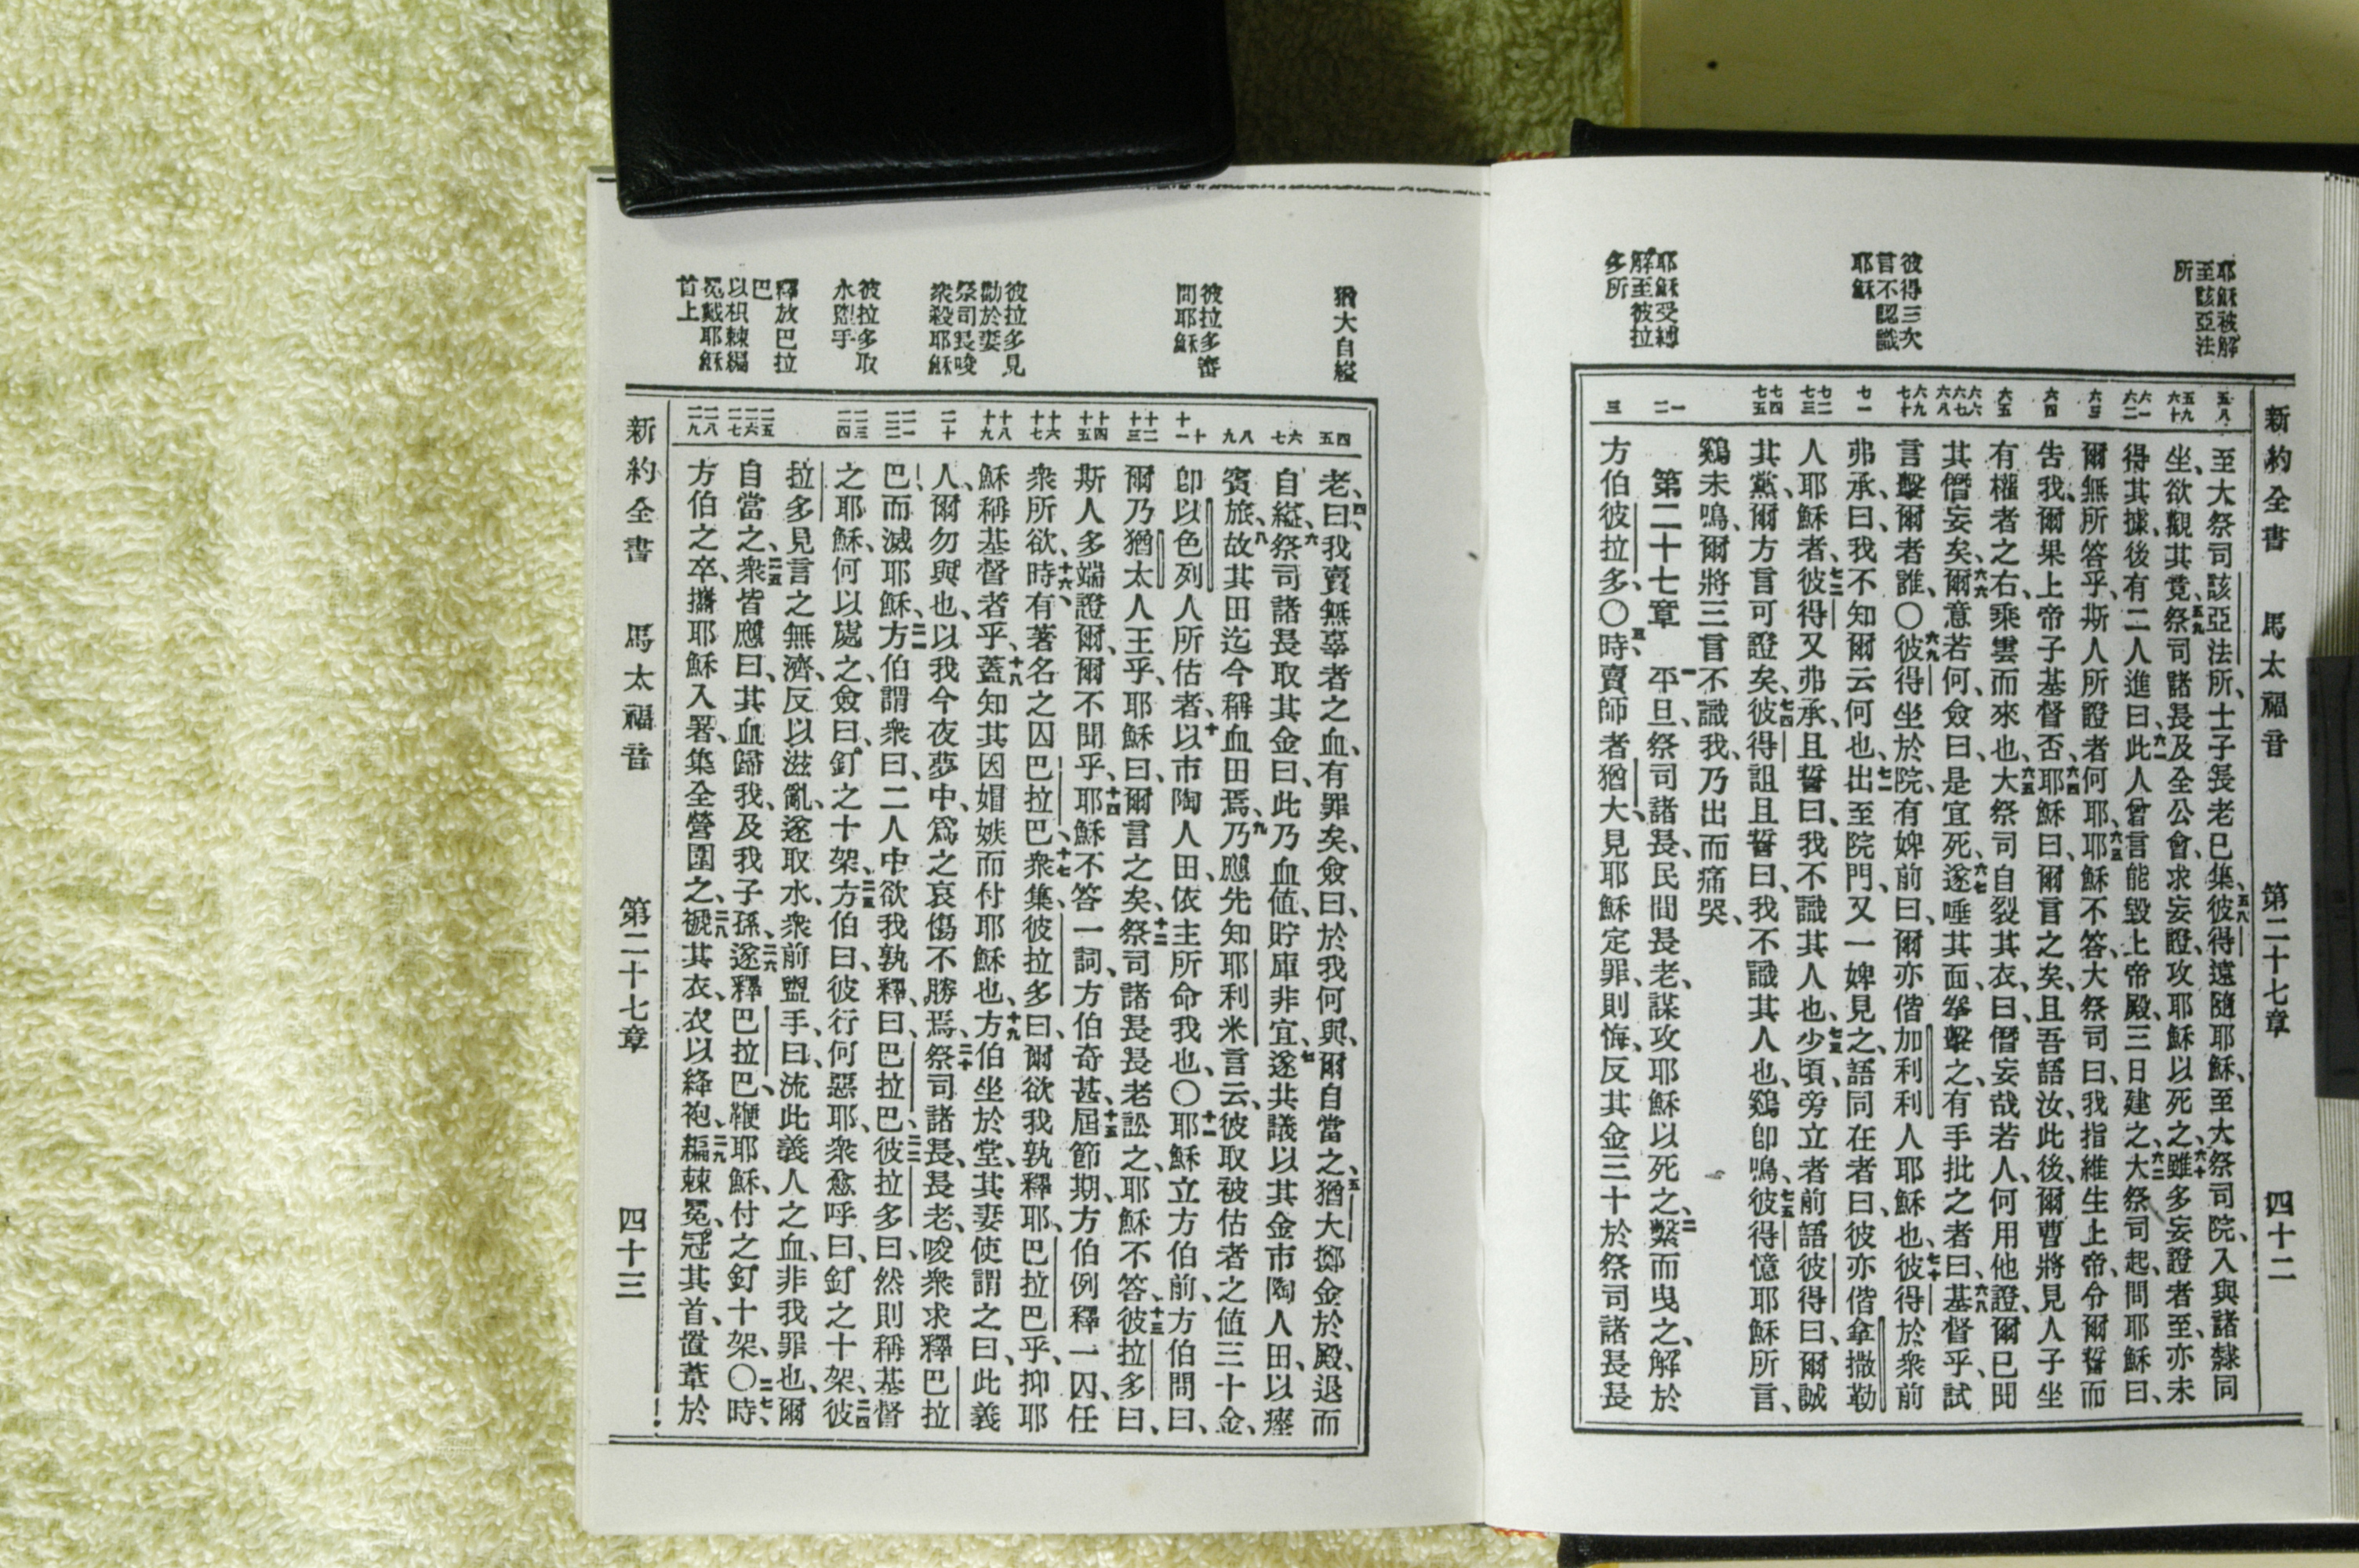 新約全書 馬太福音 第二十七章 四十二
耶穌被解
至該亞法
所
彼得三次
言不認識
耶穌
耶穌受縛
解至彼拉
多所
五八
五九 六十
六一 六二
六三
六四
六五
六六 六七 六八
六九 七十
七一
七二 七三
七四 七五
一 二
三
至大祭司該亞法所、士子長老已集、五八彼得遠隨耶穌、至大祭司院、入與諸隸同
坐、欲觀其竟、五九祭司諸長及全公會、求妄證、攻耶穌以死之、六十雖多妄證者至、亦未
得其據、後有二人進曰、六一此人曾言能毀上帝殿、三日建之、六二大祭司起、問耶穌曰、
爾無所答乎、斯人所證者何耶、六三耶穌不答、大祭司曰、我指維生上帝、令爾誓而
告我、爾果上帝子基督否、六四耶穌曰、爾言之矣、且吾語汝、此後、爾曹將見人子坐
有權者之右、乘雲而來也、六五大祭司自裂其衣、曰、僭妄哉若人、何用他證、爾已聞
其僭妄矣、六六爾意若何、僉曰、是宜死、六七遂唾其面、拳擊之、有手批之者、曰、六八基督乎、試
言擊爾者誰、〇六九彼得坐於院、有婢前曰、爾亦偕加利利人耶穌也、七十彼得於衆前
弗承、曰、我不知爾云何也、七一出至院門、又一婢見之、語同在者曰、彼亦偕拿撒勒
人耶穌者、七二彼得又弗承、且誓曰、我不識其人也、七三少頃、旁立者前語彼得曰、爾誠
其黨、爾方言可證矣、七四彼得詛且誓曰、我不識其人也、鷄卽鳴、七五彼得憶耶穌所言、
鷄未鳴、爾將三言不識我、乃出而痛哭、
第二十七章 一平旦、祭司諸長、民間長老、謀攻耶穌以死之、二繫而曳之、解於
方伯彼拉多、〇三時、賣師者猶大、見耶穌定罪、則悔、反其金三十於祭司諸長長
猶大自縊
彼拉多審
問耶穌
彼拉多見
勸於妻
祭司長唆
衆殺耶穌
彼拉多取
水盥手
釋放巴拉
巴
以枳棘編
冕戴耶穌
首上
四 五
六 七
八 九
十 十一
十二 十三
十四 十五
十六 十七
十八 十九
二十
二一 二二
二三 二四
二五 二六 二七
二八 二九
老、四曰、我賣無辜者之血、有罪矣、僉曰、於我何與、爾自當之、五猶大擲金於殿、退而
自縊、六祭司諸長取其金曰、此乃血値、貯庫非宜、七遂共議以其金市陶人田、以瘞
賓旅、八故其田迄今稱血田焉、九乃應先知耶利米言云、彼取被估者之値三十金、
卽以色列人所估者、十以市陶人田、依主所命我也、〇十一耶穌立方伯前、方伯問曰、
爾乃猶太人王乎、耶穌曰、爾言之矣、十二祭司諸長長老訟之、耶穌不答、十三彼拉多曰、
斯人多端證爾、爾不聞乎、十四耶穌不答一詞、方伯奇甚、十五屆節期、方伯例釋一囚、任
衆所欲、十六時、有著名之囚巴拉巴、十七衆集、彼拉多曰、爾欲我孰釋耶、巴拉巴乎、抑耶
穌稱基督者乎、十八蓋知其因媢嫉而付耶穌也、十九方伯坐於堂、其妻使謂之曰、此義
人、爾勿與也、以我今夜夢中、爲之哀傷不勝焉、二十祭司諸長、長老、唆衆求釋巴拉
巴、而滅耶穌、二一方伯謂衆曰、二人中欲我孰釋、曰、巴拉巴、二二彼拉多曰、然則稱基督
之耶穌、何以處之、僉曰、釘之十架、二三方伯曰、彼行何惡耶、衆愈呼曰、釘之十架、二四彼
拉多見言之無濟、反以滋亂、遂取水、衆前盥手、曰、流此義人之血、非我罪也、爾
自當之、二五衆皆應曰、其血歸我、及我子孫、二六遂釋巴拉巴、鞭耶穌、付之釘十架、〇二七時、
方伯之卒、攜耶穌入署、集全營圍之、二八褫其衣、衣以絳袍、二九編棘冕、冠其首、置葦於
新約全書 馬太福音 第二十七章 四十三